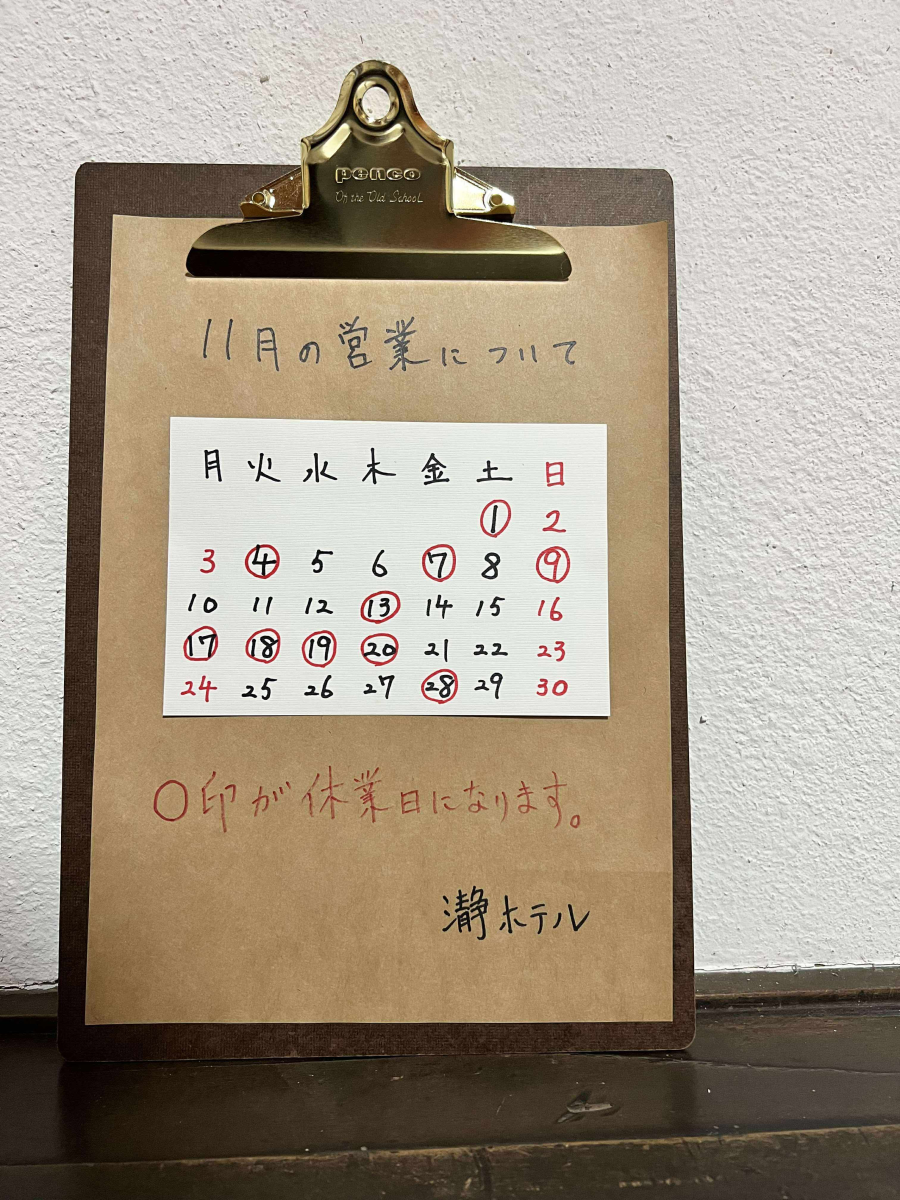 penco
On the Old School
11月の営業について
月 火 水 木 金 土 日
1 2
3 4 5 6 7 8 9
10 11 12 13 14 15 16
17 18 19 20 21 22 23
24 25 26 27 28 29 30
○印が休業日になります。
瀞ホテル